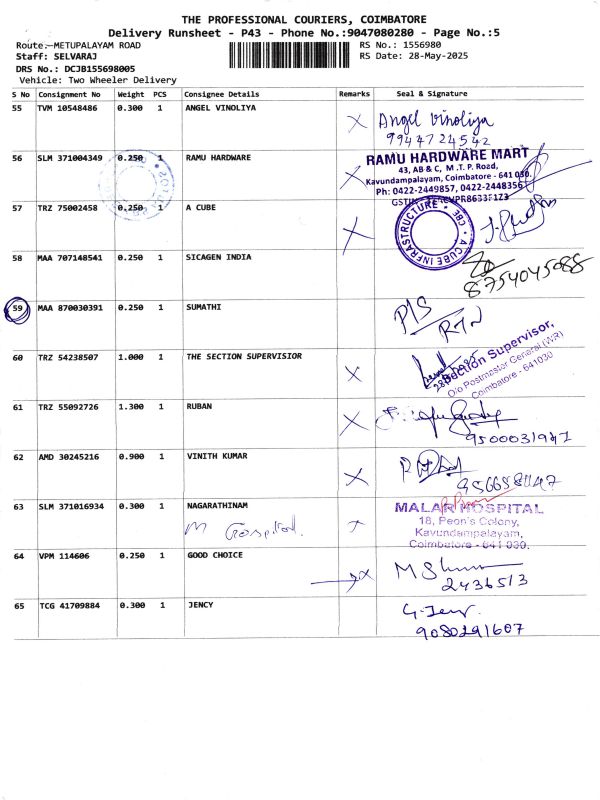 THE PROFESSIONAL COURIERS, COIMBATORE
Delivery Runsheet - P43 - Phone No.:9047080280 - Page No.:5
Route:-METUPALAYAM ROAD
RS No.: 1556980
Staff: SELVARAJ
RS Date: 28-May-2025
DRS No.: DCJB155698005
Vehicle: Two Wheeler Delivery
S No Consignment No Weight PCS Consignee Details Remarks Seal & Signature
55 TVM 10548486 0.300 1 ANGEL VINOLIYA
Angel Vinoliya
9944724542
56 SLM 371004349 0.250 1 RAMU HARDWARE
RAMU HARDWARE MART
43, AB & C, M .T. P. Road,
Kavundampalayam, Coimbatore - 641 030.
Ph: 0422-2449857, 0422-2448356
57 TRZ 75002458 0.250 1 A CUBE
A CUBE INFRASTRUCTURE CBE
58 MAA 707148541 0.250 1 SICAGEN INDIA
8754045088
59 MAA 870030391 0.250 1 SUMATHI
P/S
RTN
60 TRZ 54238507 1.000 1 THE SECTION SUPERVISIOR
Section Supervisor,
O/o Postmaster General (WR)
Coimbatore - 641030
61 TRZ 55092726 1.300 1 RUBAN
9500031947
62 AMD 30245216 0.900 1 VINITH KUMAR
63 SLM 371016934 0.300 1 NAGARATHINAM
MALAR HOSPITAL
18, Peon's Colony,
Kavundampalayam,
Coimbatore - 641 030.
64 VPM 114606 0.250 1 GOOD CHOICE
2436513
65 TCG 41709884 0.300 1 JENCY
G. Jency
9080291607